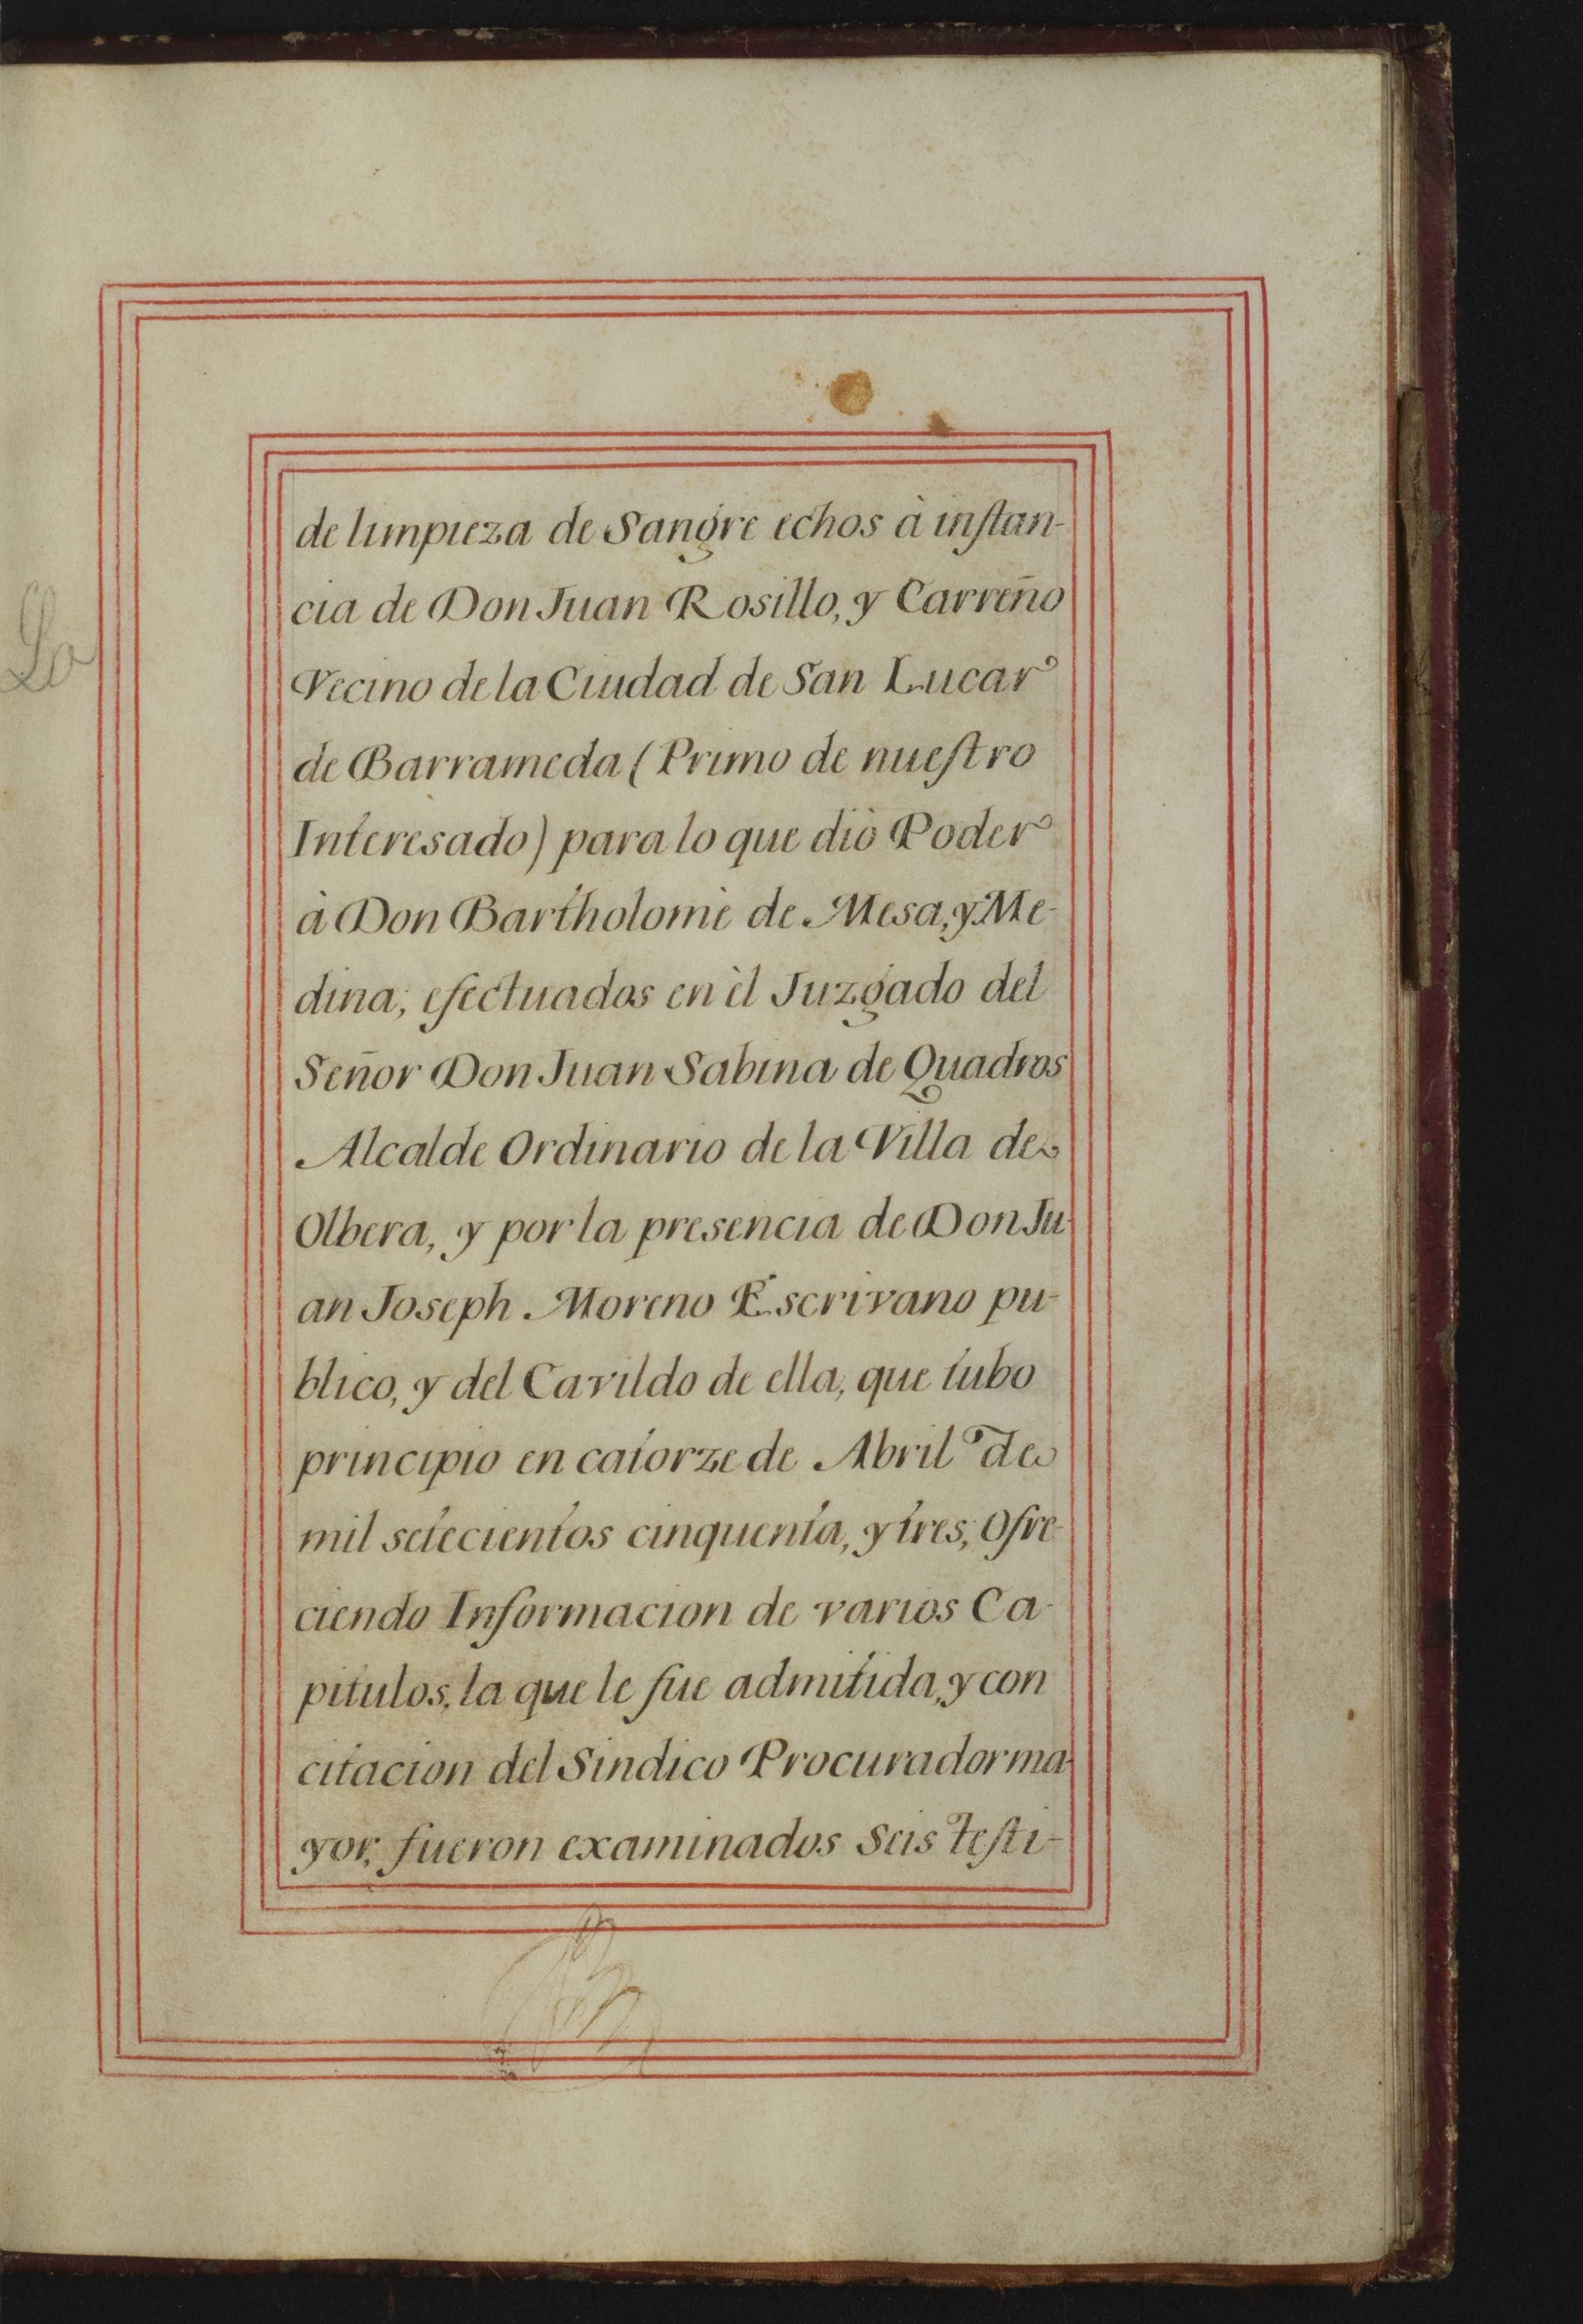 de limpieza de Sangre echos à instan-
cia de Don Juan Rosillo, y Carreño
Vecino de la Ciudad de San Lucar
de Barrameda (Primo de nuestro
Interesado) para lo que diò Poder
à Don Bartholomè de Mesa, y Me-
dina; efectuados en èl Juzgado del
Señor Don Juan Sabina de Quadros
Alcalde Ordinario de la Villa de
Olbera, y por la presencia de Don Ju-
an Joseph Moreno Escrivano pu-
blico, y del Cavildo de ella; que tubo
principio en catorze de Abril de
mil setecientos cinquenta, y tres; Ofre-
ciendo Informacion de varios Ca-
pitulos, la que le fue admitida, y con
citacion del Sindico Procurador ma-
yor, fueron examinados Seis testi-